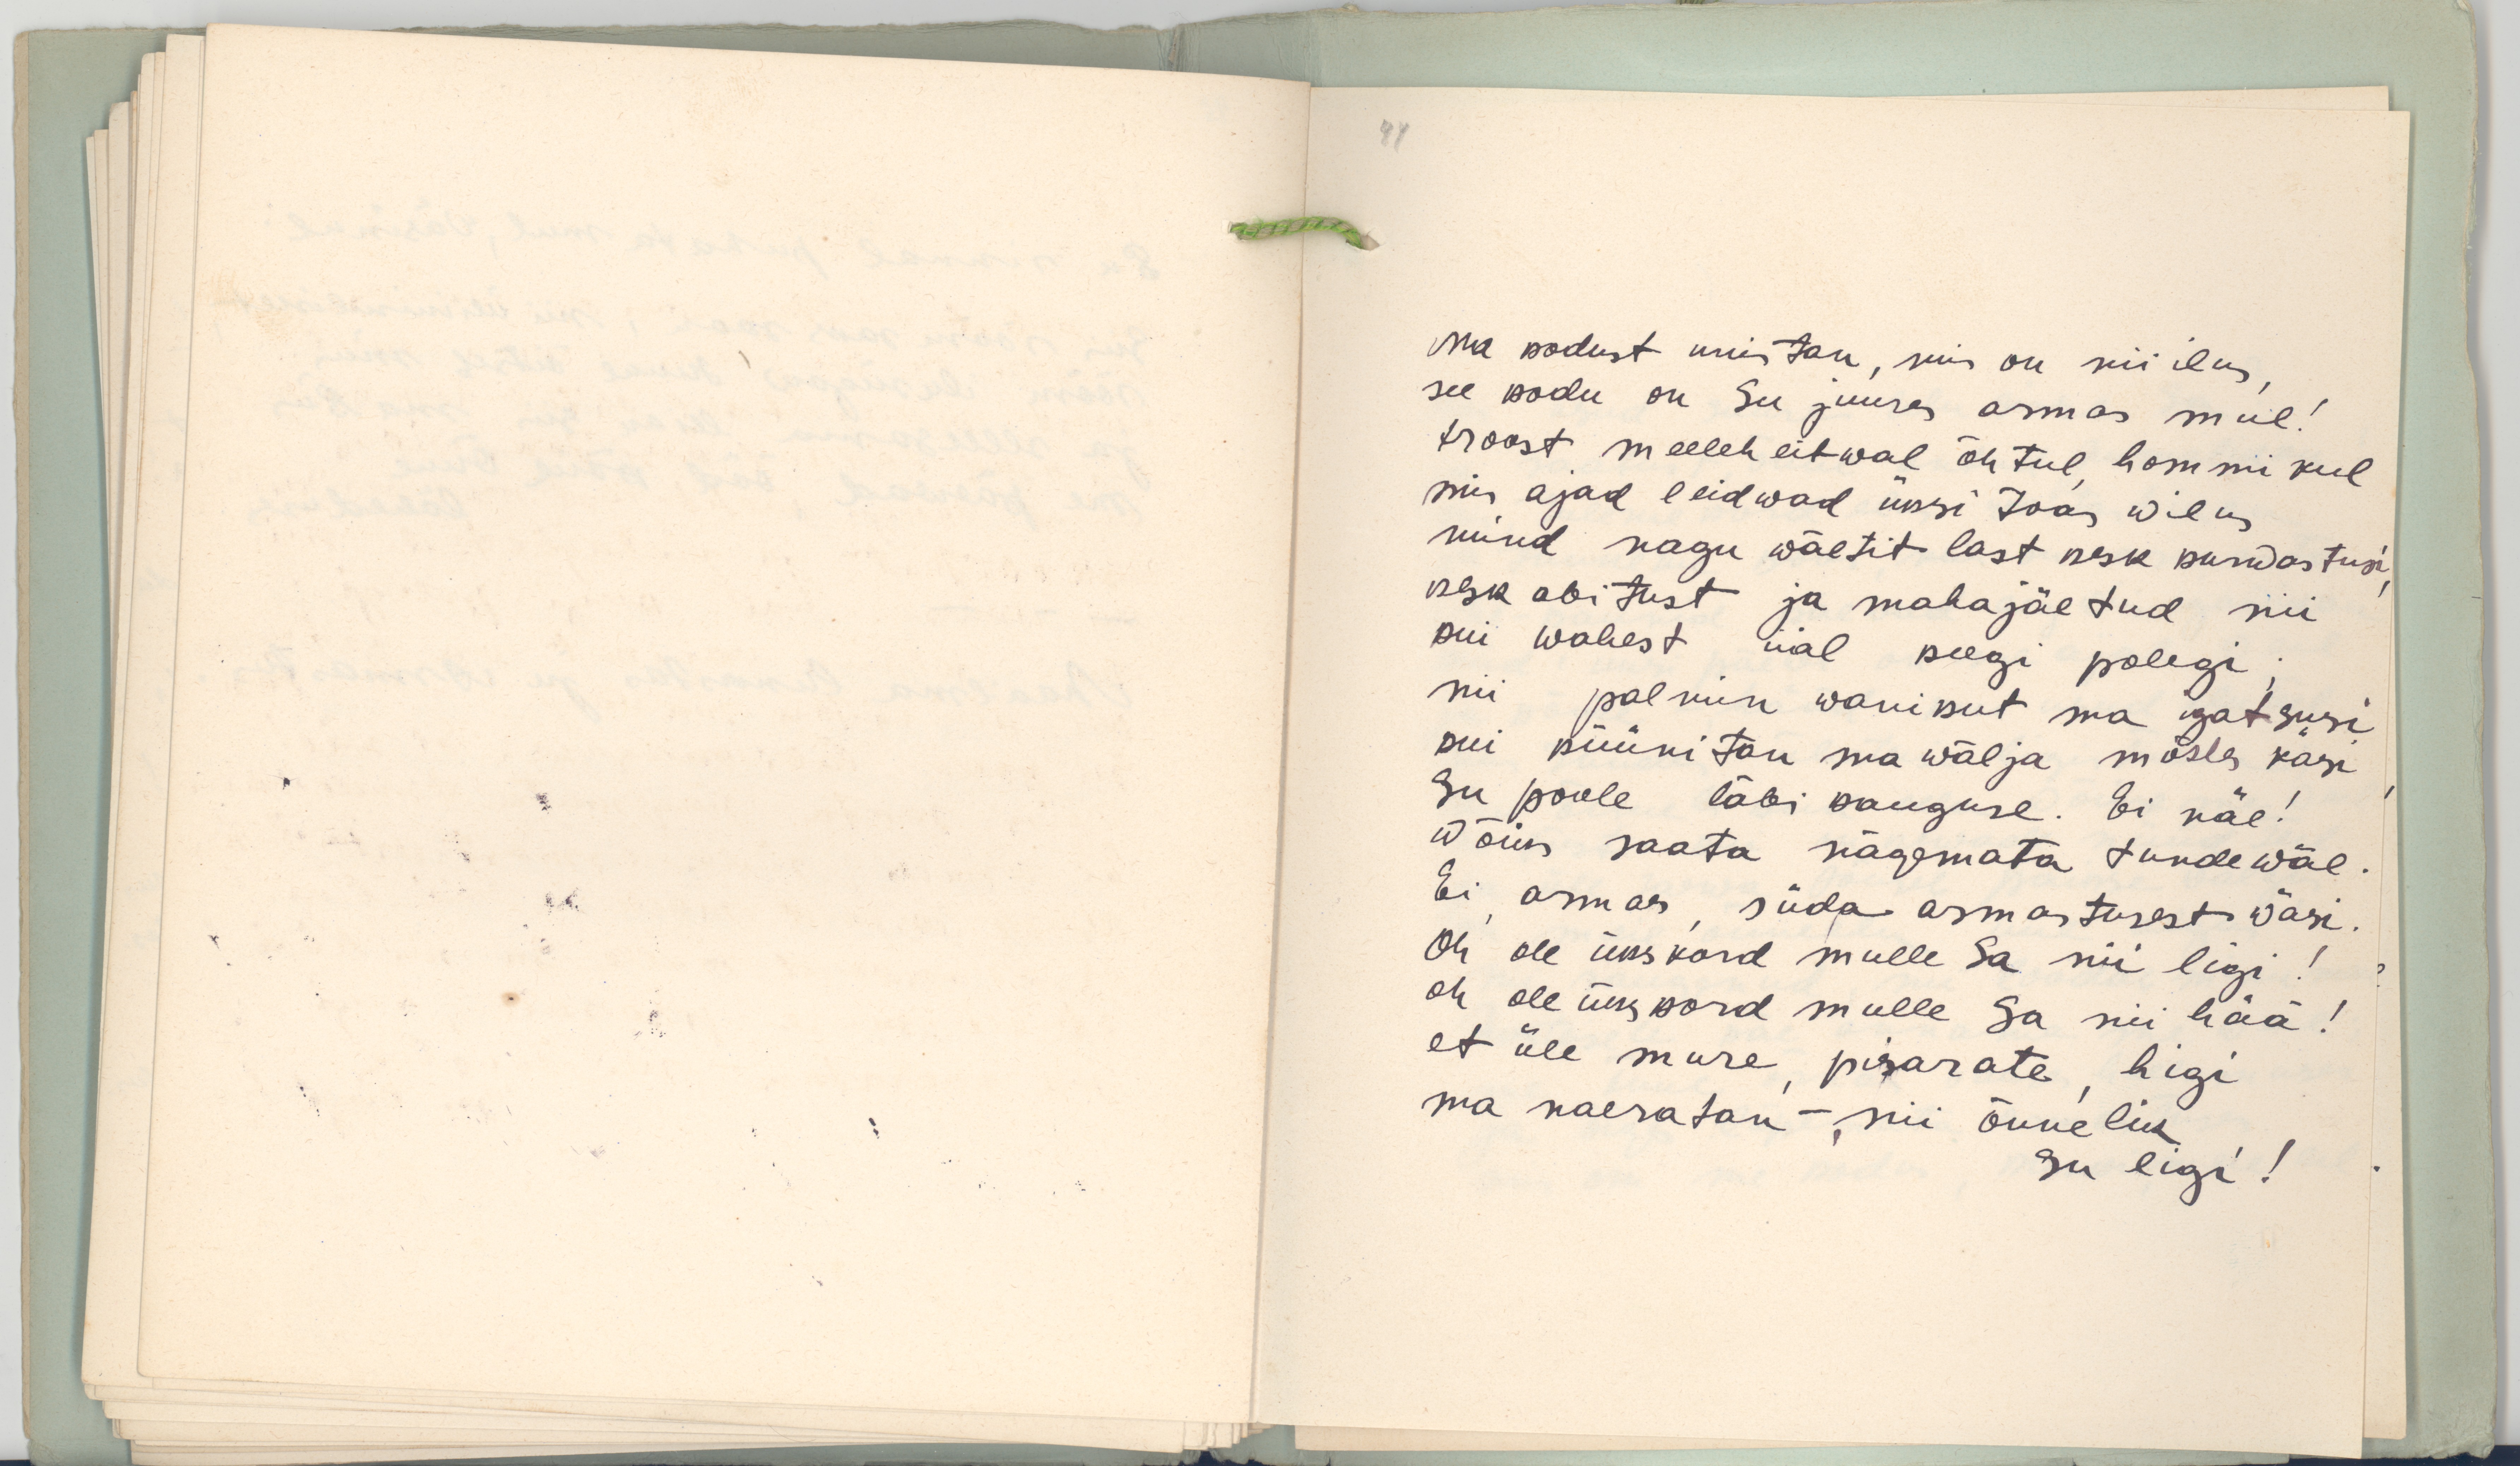 41
Ma kodust unistan, mis on nii ilus,
see kodu on Su juures armas mül!
troost meeleheitwal õhtul, hommikul
mis ajad leidwad üksi toas wilus
mind nagu wäetit last kesk kurwastusi,
kesk abitust ja mahajäetud nii
kui wahest iial keegi polegi;
nii palmin wanikut ma igatsusi
kui küünitan ma wälja mõttes käsi
Su poole läbi kauguse. Ei näe!
Wõiks saata nägemata tundewäe.
Ei, armas, süda armastusest wäsi.
Oh ole ükskord mulle Sa nii ligi!
oh ole ükskord mulle Sa nii hää!
et üle mure, pisarate, higi
ma naeratan –, nii õnnelik
Su ligi!